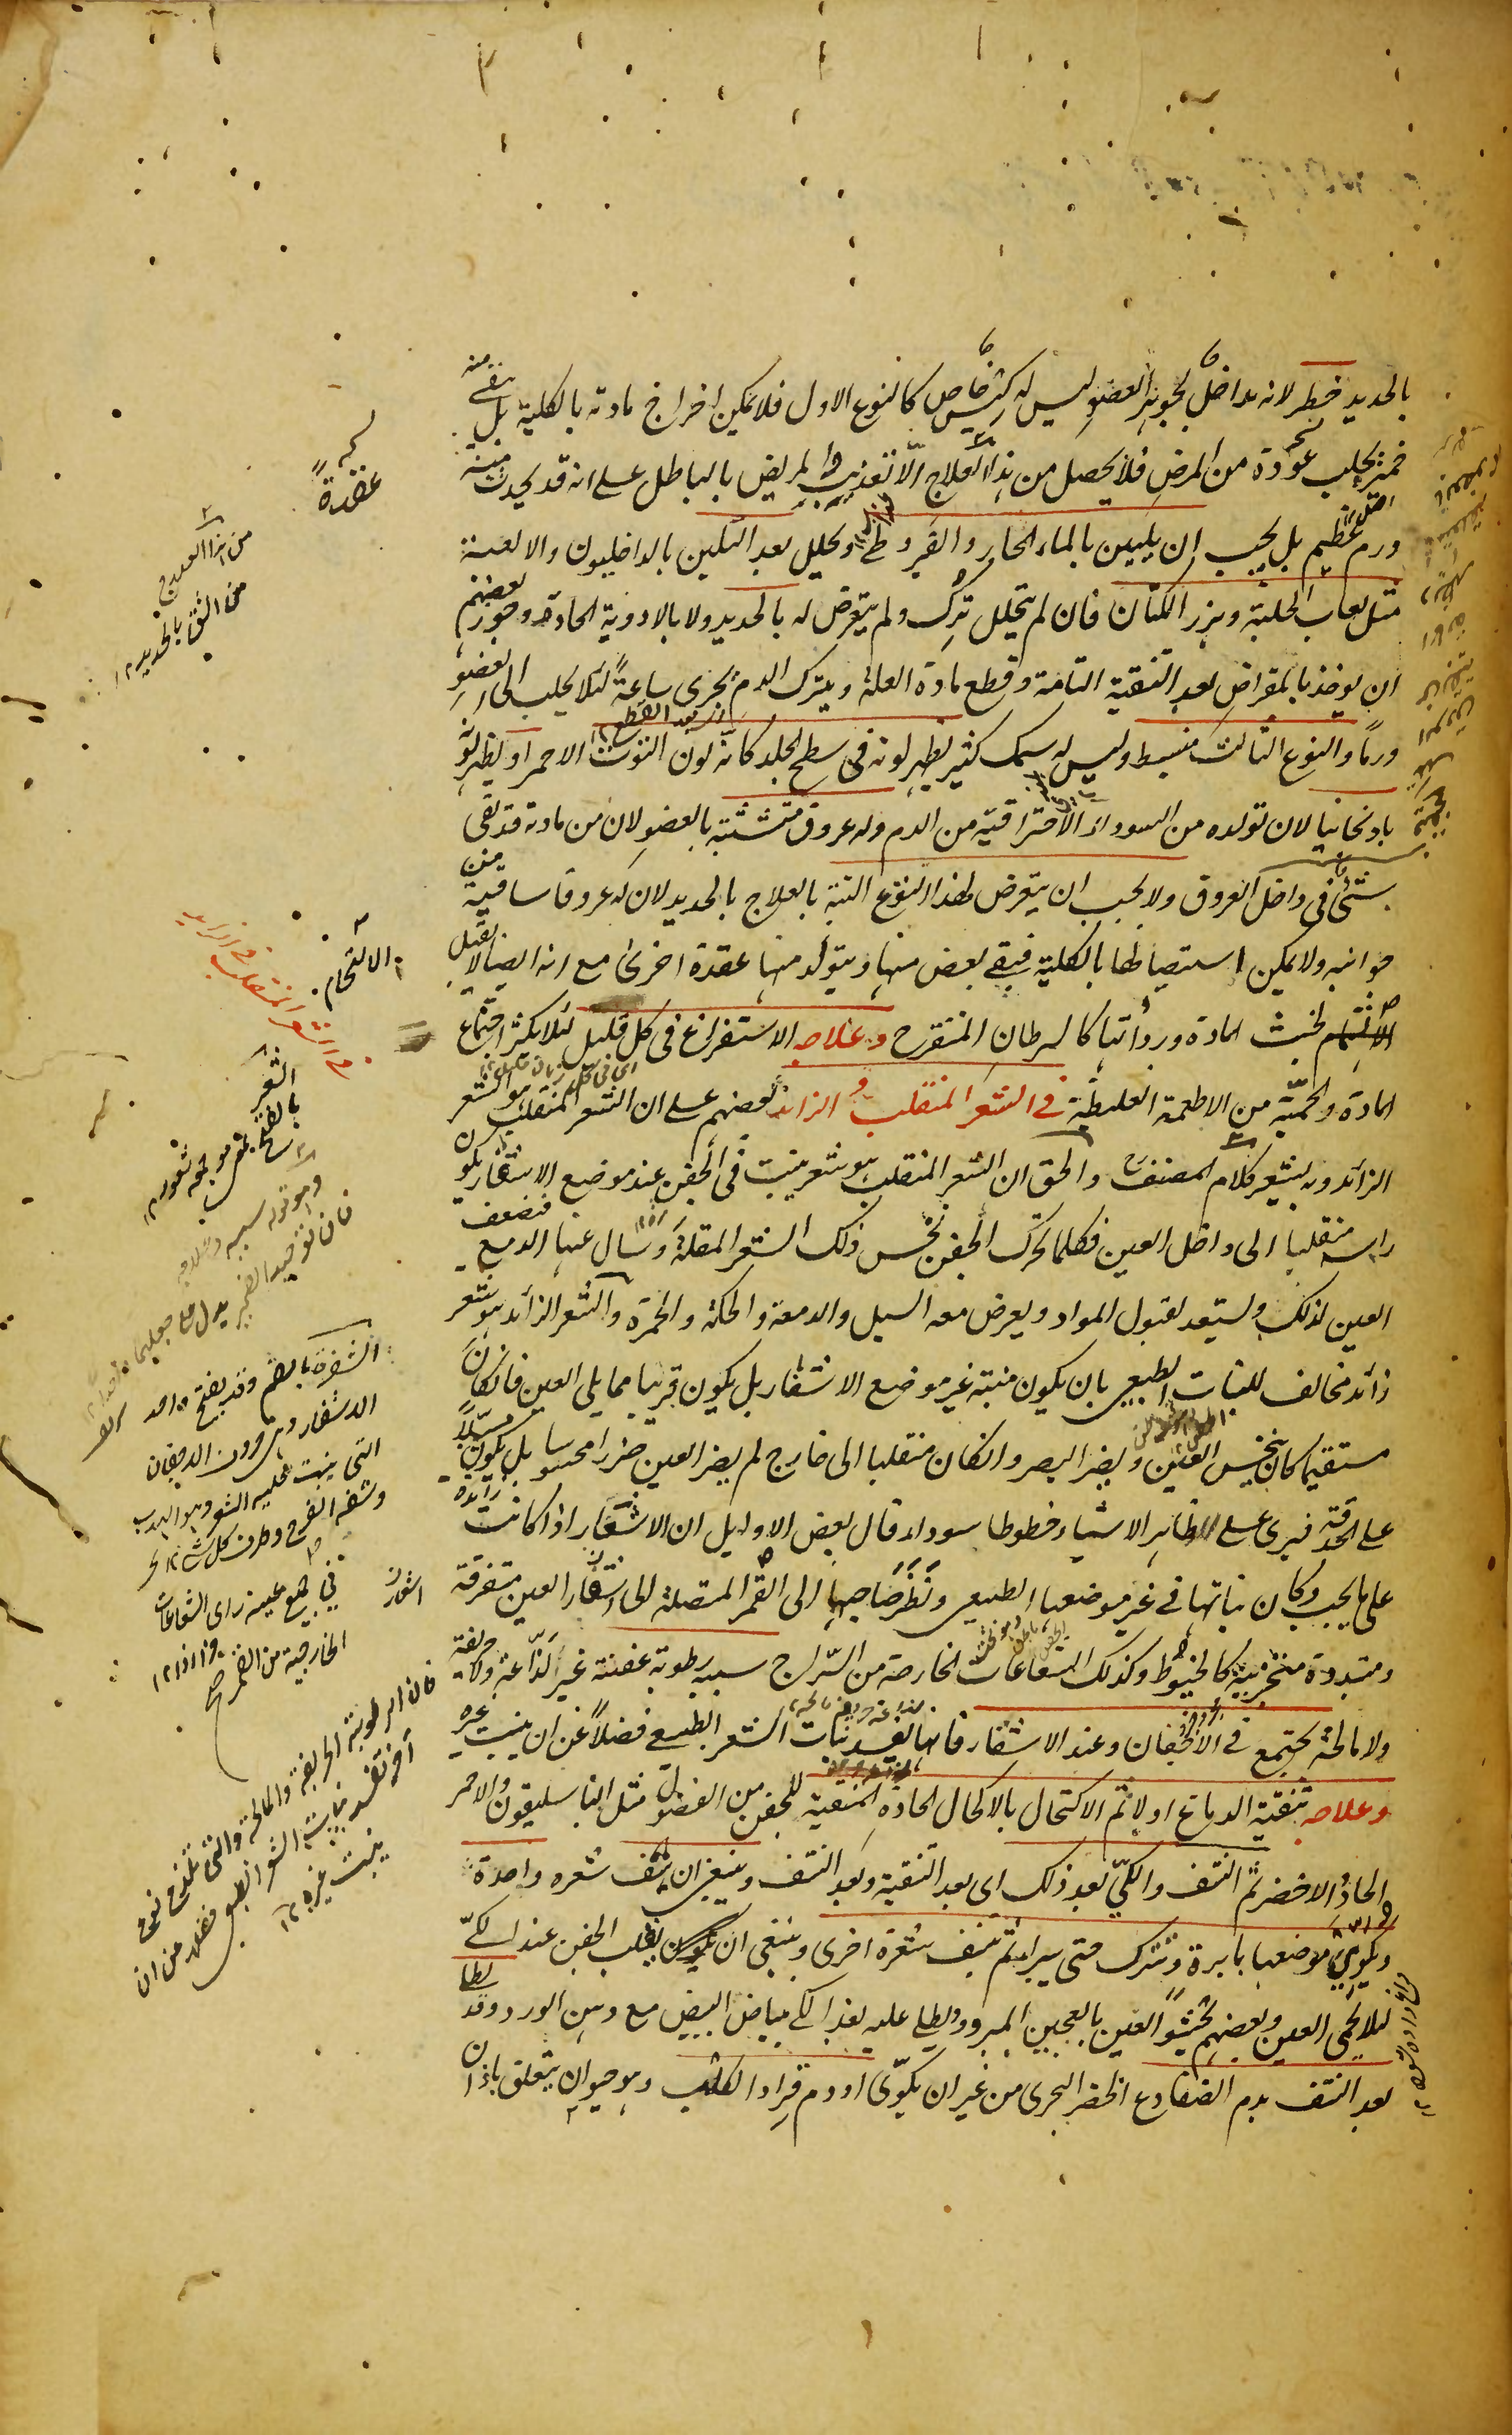 بالحديد خطر لانه مداخل لجوهر العضو ليس له كيس خاص كالنوع الاول فلا يمكن اخراج مادته بالكلية بل يبقى منه
خميرة يجلب عودة من المرض فلا يحصل من هذا العلاج الا تعذيب المريض بالباطل على انه قد يحدث منه
ورم عظيم بل يجب ان يليين بالماء الحار والقيروطى ويحلل بعد التليين بالداخليون والالعبة
مثل لعاب الحلبة وبزر الكتان فان لم يتحلل ترك ولم يتعرض له بالحديد ولا بالادوية الحادة وجوز بعضهم
ان يوخذ بالمقراض بعد التنقية التامة وقطع مادة العلة ويترك الدم يجرى ساعة لئلا يجلب الى العضو
ورما والنوع الثالث منبسط وليس له سمك كثير يظهر لونه فى سطح الجلد كانه لون التوث الاحمر او يظهر لونه
باذنجانيا لان تولده من السوداء الاحتراقية من الدم وله عروق متشبثة بالعضو لان من مادته قد بقى
شئ فى داخل العروق ولا يجب ان يتعرض لهذا النوع البتة بالعلاج بالحديد لان له عروقا ساقية من
جوانبه ولا يمكن استيصالها بالكلية فيبقى بعض منها ويتولد منها عقدة اخرى مع انه ايضا لا يقبل
الالتيام لخبث المادة ورداتها كالسرطان المتقرح وعلاجه الاستفراغ فى كل قليل لئلا يكثر اجتماع
المادة والحمية من الاطعمة الغليظة فى الشعر المنقلب والزائد بعضهم على ان الشعر المنقلب هو الشعر
الزائد وبه يشعر كلام المصنف والحق ان الشعر المنقلب هو شعر ينبت فى الجفن عند موضع الاشفار يكون
راسه منقلبا الى داخل العين فكلما تحرك الجفن نخس ذلك الشعر المقلة وسال عنها الدمع فتضعف
العين لذلك ويستعد لقبول المواد ويعرض معه السبل والدمعة والحكة والحمرة والشعر الزائد هو شعر
زائد مخالف للنبات الطبيعى بان يكون منبته غير موضع الاشفار بل يكون قريبا مما يلى العين فان كان
مستقيما كان ينخس العين ويضر البصر وان كان منقلبا الى خارج لم يضر العين ضررا محسوسا بل يكون مسبلا
على الحدقة فيرى على ظاهر الاشياء خطوطا سوداء قال بعض الاوايل ان الاشفار اذا كانت زائدة
على ما يجب وكان نباتها فى غير موضعها الطبيعى ونظر صاحبها الى القمر المتصلة الى اشفار العين متفرقة
ومتبددة متحزبة كالخيوط وكذلك الشعاعات الخارجة من السراج سببه رطوبة عفنة غير لذاعة ولا حريفة
ولا مالحة يجتمع فى الاجفان وعند الاشفار فانها تفسد نبات الشعر الطبيعى فضلا عن ان ينبت غيره
وعلاجه تنقية الدماغ اولا ثم الاكتحال بالاكحال الحادة المنقية للجفن من الفضول مثل الباسليقون والاحمر
الحاد والاخضر ثم النتف والكى بعد ذلك اى بعد التنقية وبعد النتف وينبغى ان ينتف شعره واحدة
ويكوى موضعها بابرة وتترك حتى يبرا ثم ينتف شعرة اخرى وينبغى ان يقلب الجفن عند الكى
لئلا يحمى العين وبعضهم يحشو العين بالعجين المبرد ويطلى عليه بعد الكى بياض البيض مع دهن الورد وقد يطلى
بعد النتف بدم الضفادع الخضر البحرى من غير ان يكوى او دم قراد الكلب وهو حيوان يتعلق باذان
عقدة
من هذا العلاج
من الثقب بالحديد ١٢
الالتحام
فى الشعر المنقلب والزائد
الشفرة بالضم وقد يفتح واحد
الاشفار وهى حروف الاجفان
التى ينبت عليه الشعر وهو الهدب
الخارجية من القمر
فان الرطوبة الحريفة والمالحة والتى تلذع
تفسد نبات الشعر الطبيعى فضلا من ان
ينبت غيره ١٢